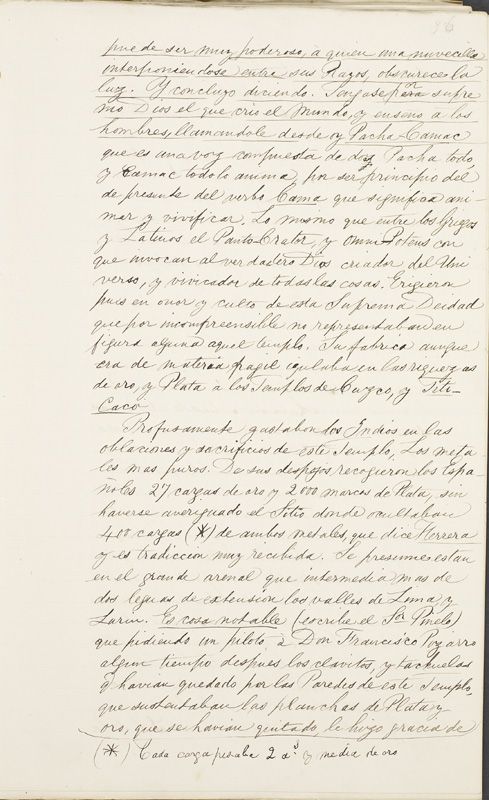 96
puede de ser muy poderoso, à quien una nuvecilla
interponiendose entre sus Rayos, obscurece la
luz. Y concluyo diciendo. Tengase por supre
mo Dios el que crió el Mundo, y enseño a los
hombres, llamandole desde oy Pacha-Camac
que es una voz compuesta de dos, Pacha todo,
y Camac todo lo anima, por ser principio del
de presente del verbo Cama que significa ani-
mar y vivificar. Lo mismo que entre los Griegos
y Latinos el Panto-Crator, y Omni Potens con
que invocan al verdadero Dios criador del Uni
verso, y vivicador de todas las cosas. Erigieron
pues en onor y culto de esta Suprema Deidad
que por incompreensible no representaban en
figura alguna aquel templo. Su fabrica aunque
era de materia fragil igulaba en las riquezas
de oro, y Plata à los Templos de Cuzco, y Titi-
Caco
Profusamente gastabon dos Indios en las
oblaciones y sacrificios de este Templo, Los meta-
les mas puros. De sus despojos recogieron los Espa-
ñoles 27 cargas de oro y 2000 marcos de Plata, sin
haverse averiguado el Sitio donde ocultaban
400 cargas (*) de ambos metales, que dice Herrera
y es tradiccion muy recibida. Se presume estan
en el grande arenal que intermedia mas de
dos leguas de extension los valles de Lima y
Lurin. Es cosa notable (escribe el Sor Pinelo)
que pidiendo un piloto, à Don Francisco Pizarro
algun tiempo despues los clavitos, y tachuelas
q havian quedado por las Paredes de este Templo,
que sustentaban las planchas de Plata y
oro, que se havian quitado, le hizo gracia de
(*) Cada carga pesaba 2 as. y media de oro